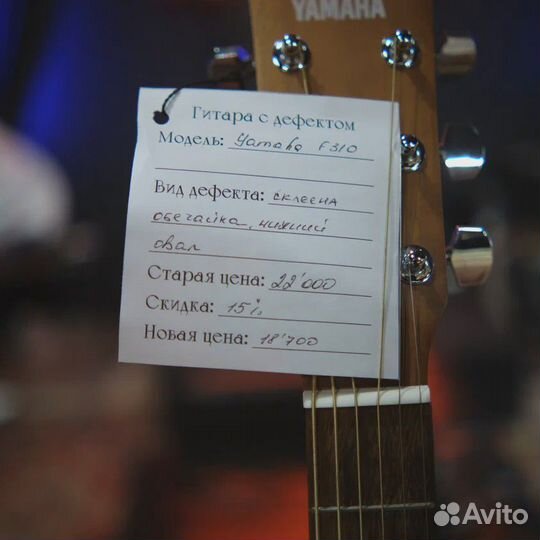 YAMAHA
Гитара с дефектом
Модель: Yamaha F310
Вид дефекта: склеена
обечайка, нижний
овал
Старая цена: 22'000
Скидка: 15%
Новая цена: 18'700
Avito